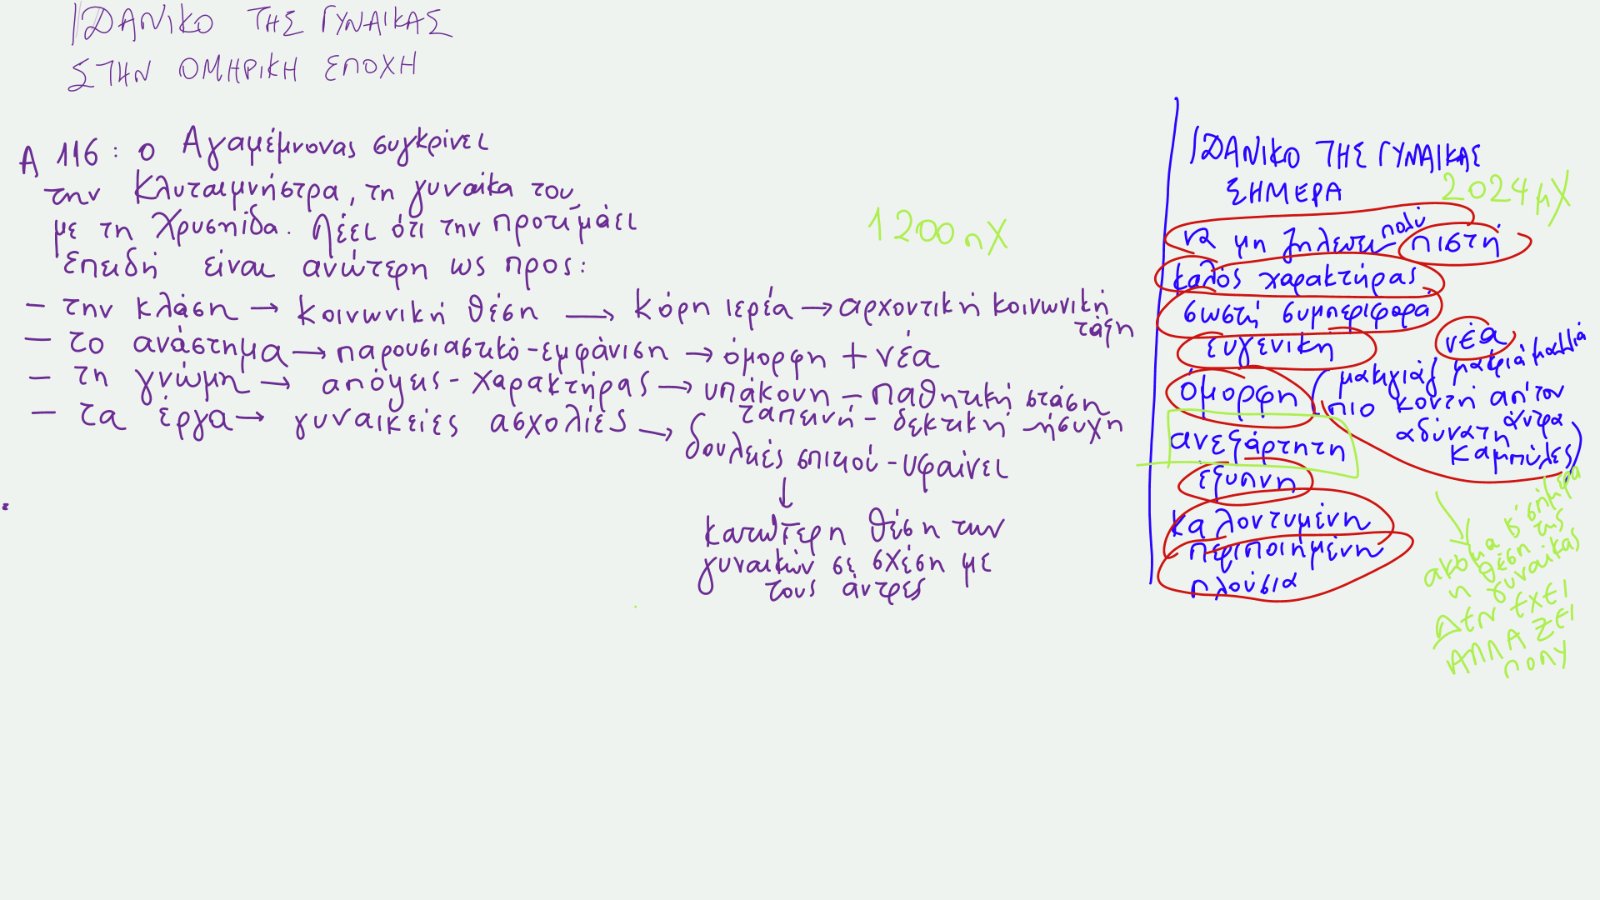 ΙΔΑΝΙΚΟ ΤΗΣ ΓΥΝΑΙΚΑΣ
ΣΤΗΝ ΟΜΗΡΙΚΗ ΕΠΟΧΗ
Α 116: ο Αγαμέμνονας συγκρίνει
την Κλυταιμνήστρα, τη γυναίκα του
με τη Χρυσηίδα. Λέει ότι την προτιμάει
επειδή είναι ανώτερη ως προς:
- την κλάση → κοινωνική θέση → κόρη ιερέα → αρχοντική κοινωνική
τάξη
- το ανάστημα → παρουσιαστικό-εμφάνιση → όμορφη + νέα
- τη γνώμη → απόψεις - χαρακτήρας → υπάκουη - παθητική στάση
ταπεινή - δεκτική - ήσυχη
- τα έργα → γυναικείες ασχολίες → δουλειές σπιτιού - υφαίνει
↓
κατώτερη θέση των
γυναικών σε σχέση με
τους άντρες
1200 πΧ
ΙΔΑΝΙΚΟ ΤΗΣ ΓΥΝΑΙΚΑΣ
ΣΗΜΕΡΑ
2024 μΧ
να μη ζηλεύει πολύ πιστή
καλός χαρακτήρας
σωστή συμπεριφορά
ευγενική νέα
όμορφη (μακιγιάζ μακριά μαλλιά
πιο κοντή απ'τον
άντρα
αδύνατη
καμπύλες)
ανεξάρτητη
έξυπνη
καλοντυμένη
περιποιημένη
πλούσια
ακόμα κ' σήμερα
η θέση της
γυναίκας
ΔΕΝ ΕΧΕΙ
ΑΛΛΑΞΕΙ
ΠΟΛΥ